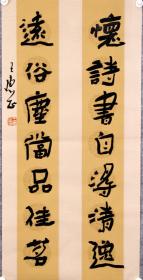 懷詩書自得清逸
遠俗塵當品佳茗